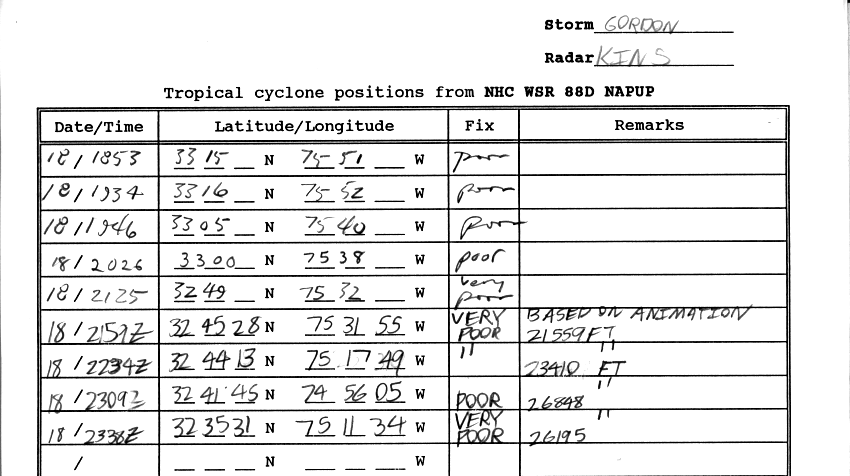 Storm GORDON
Radar KINS
Tropical cyclone positions from NHC WSR 88D NAPUP
Date/Time Latitude/Longitude Fix Remarks
18/1853 33 15 __ N 75 51 __ W poor
18/1934 33 16 __ N 75 52 __ W poor
18/1946 33 05 __ N 75 40 __ W poor
18/2026 33 00 __ N 75 38 __ W poor
18/2125 32 49 __ N 75 32 __ W very poor
18/2159Z 32 45 28 N 75 31 55 W VERY POOR BASED ON ANIMATION 21559 FT
18/2234Z 32 44 13 N 75 17 49 W " " 23410 FT
18/2309Z 32 41 45 N 74 56 05 W POOR " 26848
18/2338Z 32 35 31 N 75 11 34 W VERY POOR " 26195
/ __ __ __ N __ __ __ W